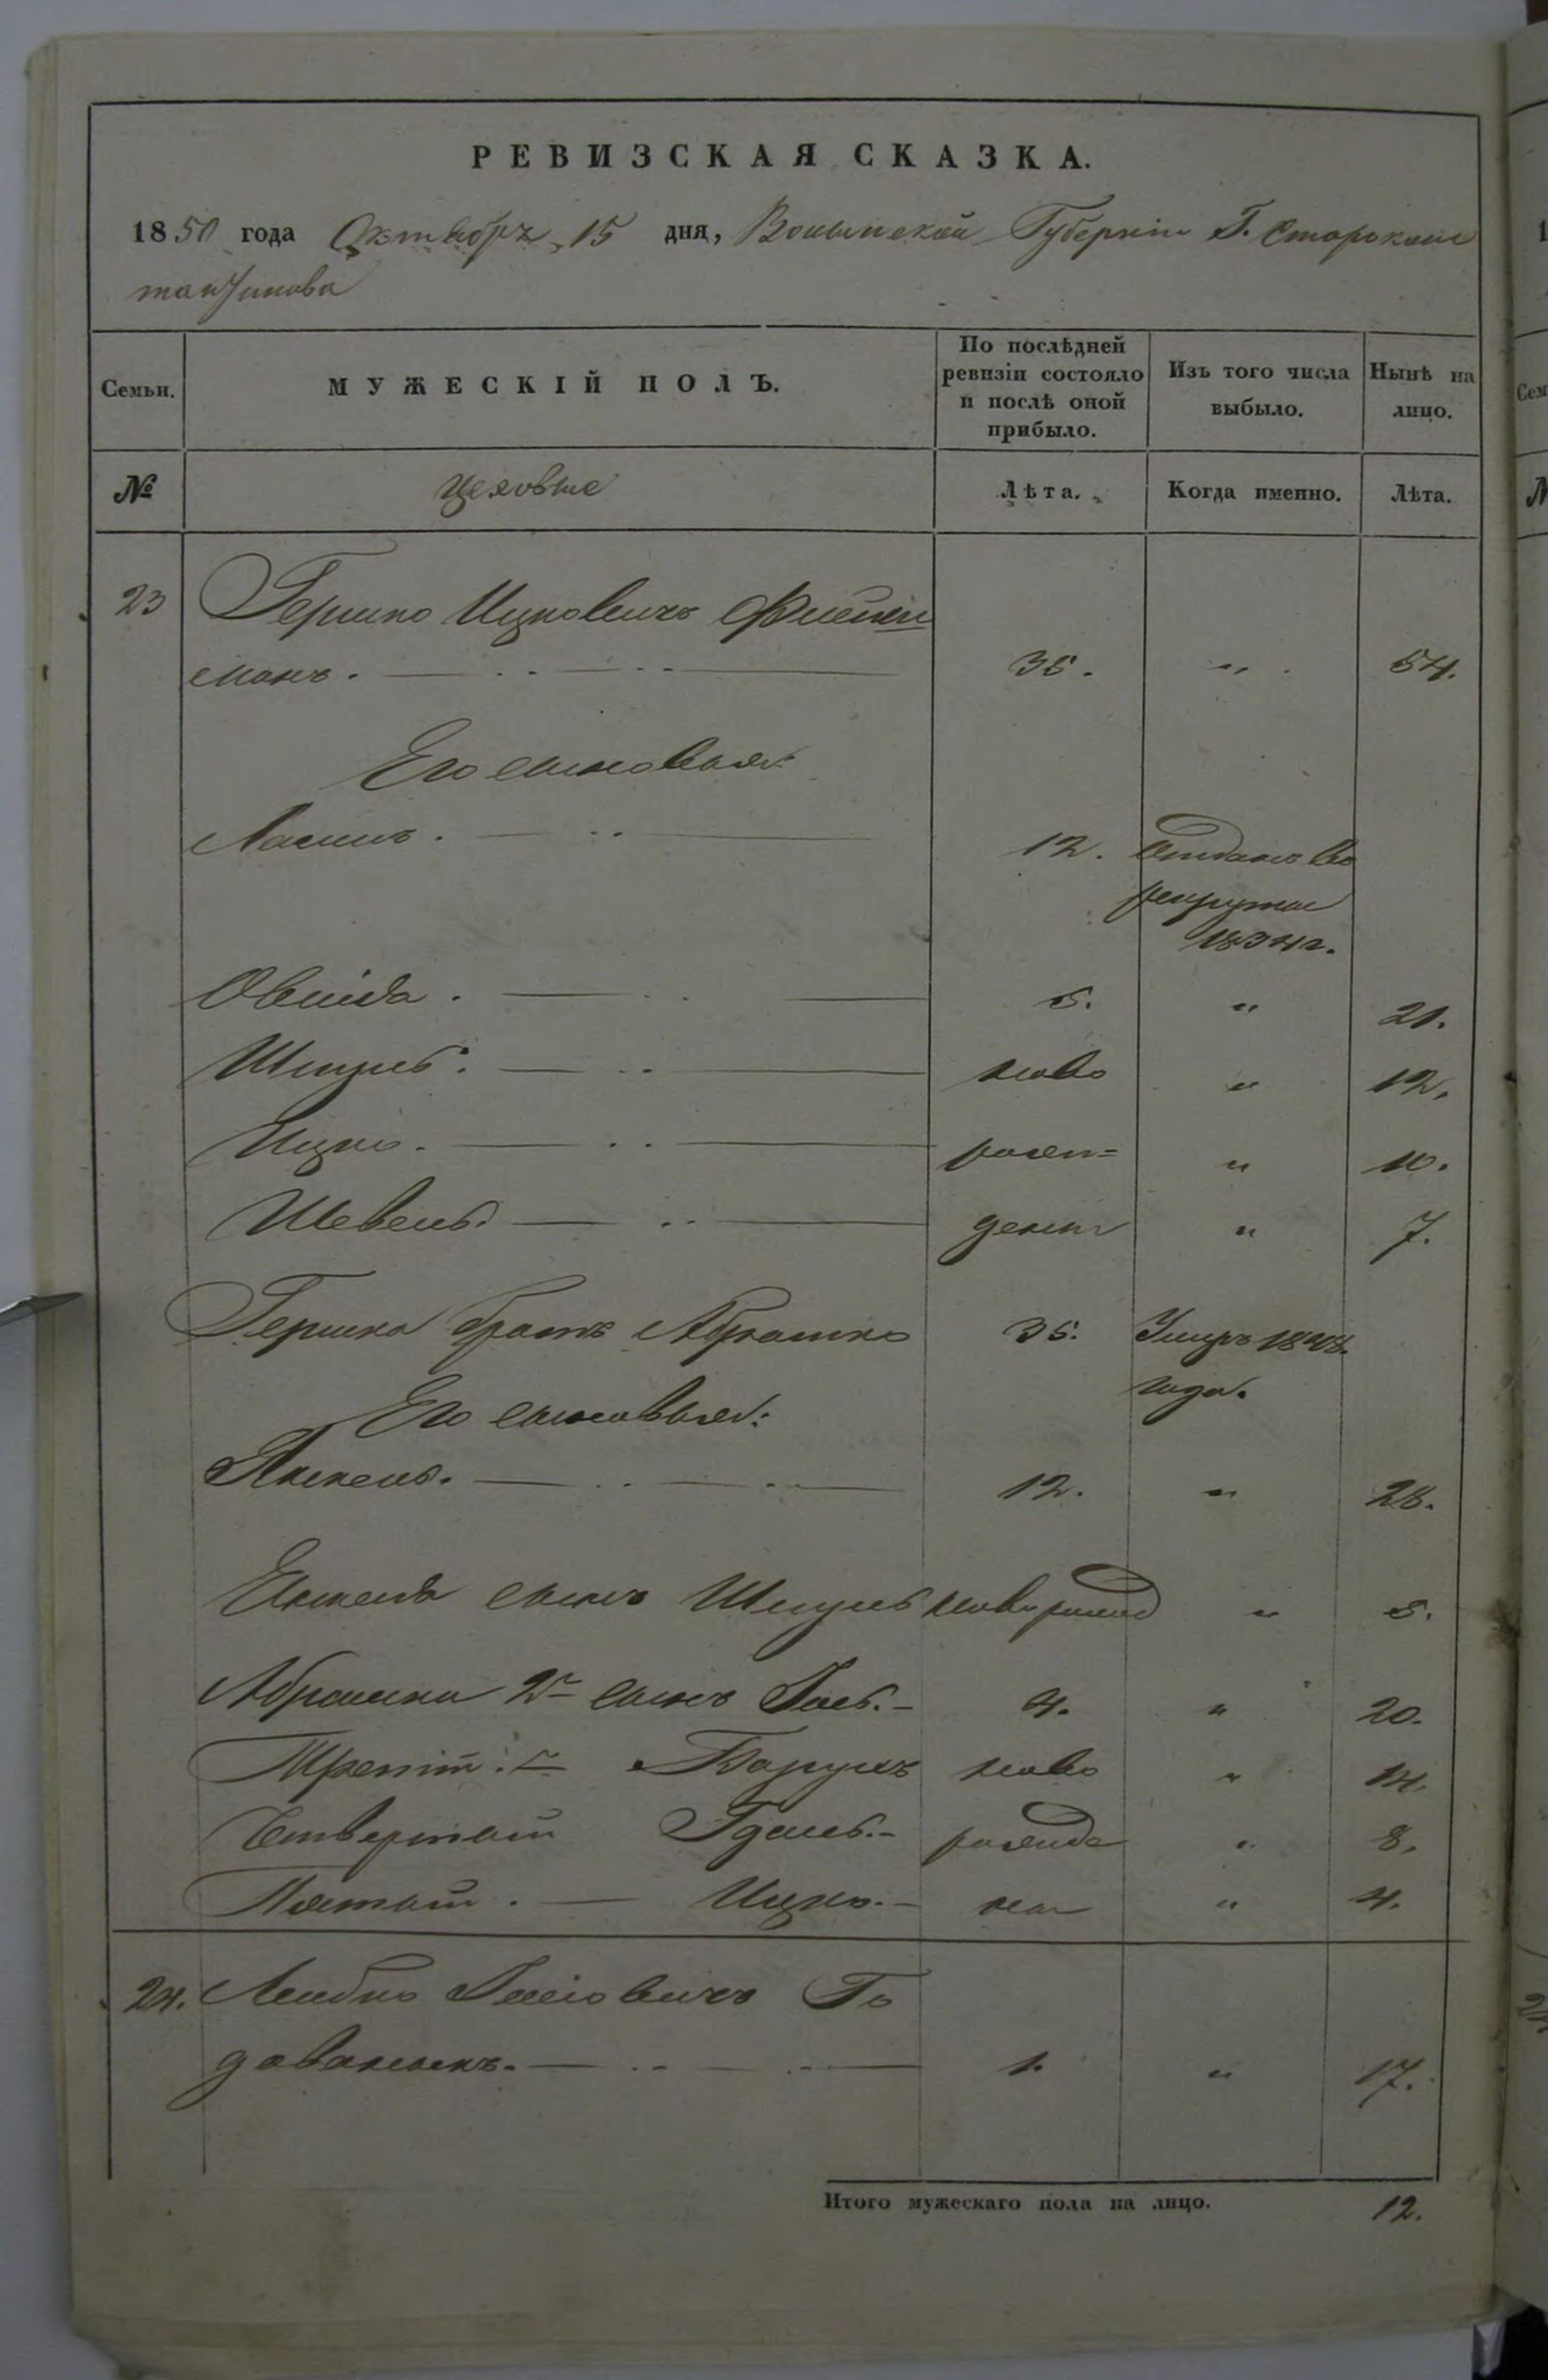 РЕВИЗСКАЯ СКАЗКА.
1850 года Октября 15 дня, Волынской Губерніи Г. Староконс
тантинова
Семьи.
МУЖЕСКІЙ ПОЛЪ.
По послѣдней
ревизіи состояло
и послѣ оной
прибыло.
Изъ того числа
выбыло.
Нынѣ на
лицо.
№
Цеховые
Лѣта.
Когда именно.
Лѣта.
23 Гершко Ицковичъ
манъ. 38. „ 54.
Его сыновья:
12. Отданъ въ
рекруты
1834г.
5. „ 21.
Шмуль. ново „ 12.
Ицко. рожен= „ 10.
Шевель. денн „ 7.
Гершка братъ Абрамко 35. Умеръ 1848.
года.
Его сыновья:
Янкель. 12. „ 28.
Янкеля сынъ Шмуль новорожд „ 5.
Абрамки 2й сынъ 4. „ 20.
Третій Борухъ ново „ 14.
Четвертый рожде „ 8.
Пятый. Ицко. нн „ 4.
24. Лейбко Го
дованыкъ. 1. „ 17.
Итого мужескаго пола на лицо. 12.